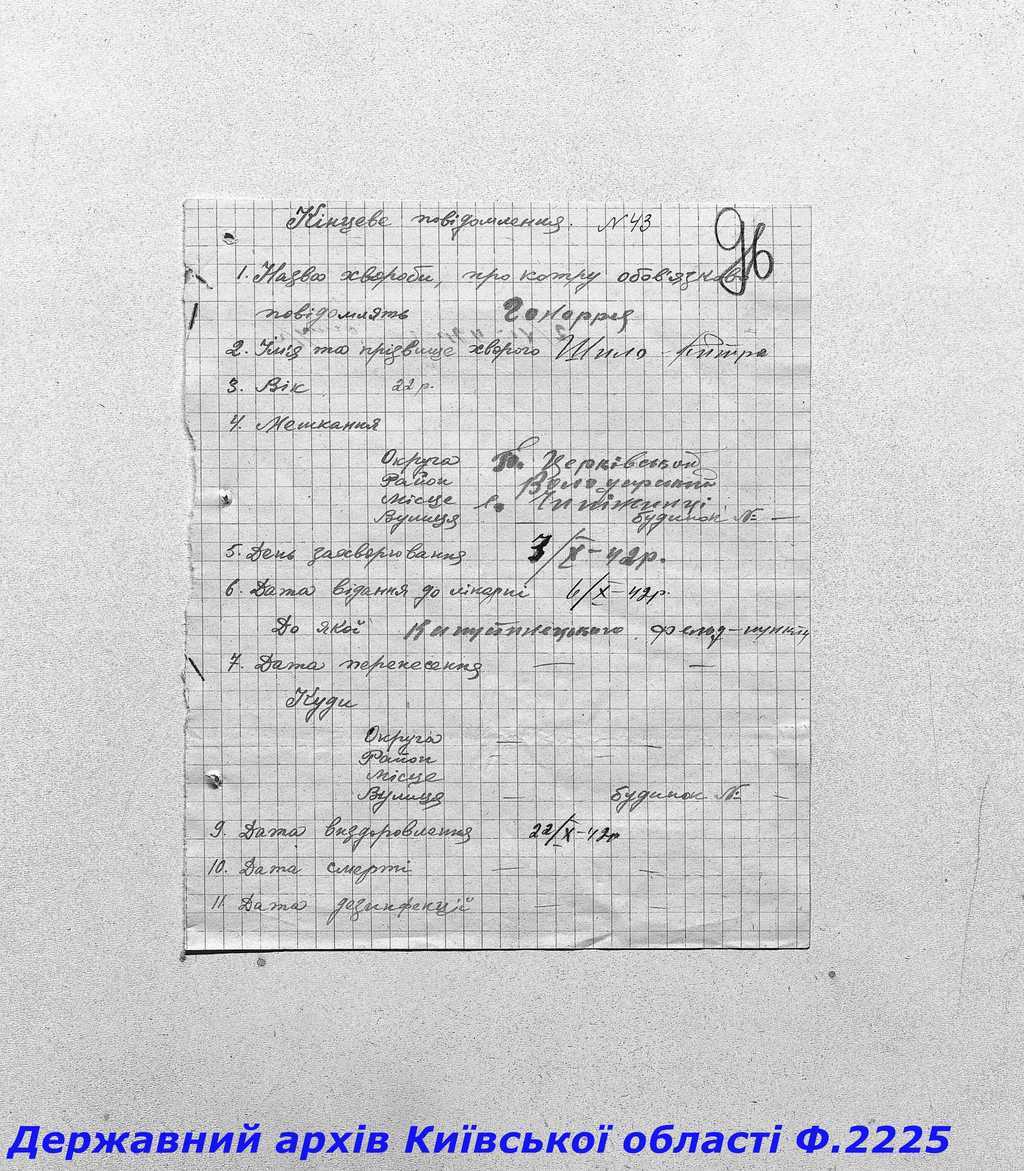 Кінцеве повідомлення. N 43
1. Назва хвороби, про котру обов'язково
повідомлять Гоноррея
2. Імія та прізвище хворого Шило
3. Вік 22 р.
4. Мешкання
Округа Б. Церківський
Район Володарський
Місце с.
Вулиця будинок № —
5. День захворювання 3/X–42р.
6. Дата відання до лікарні 6/X–42р.
До якої фельд–пункту
7. Дата перенесення — —
Куди
Округа — —
Район –
Місце
Вулиця — будинок № –
9. Дата виздоровлення 22/X–42р
10. Дата смерті — —
11 Дата дезинфекції — —
Державний архів Київської області Ф.2225